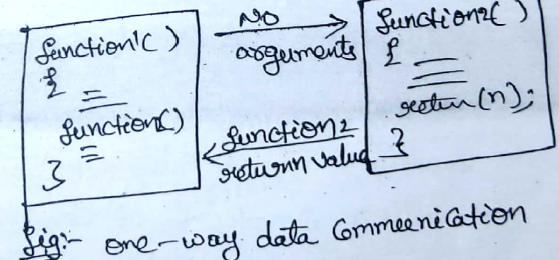 function1()
{
function2()
}
No
arguments
function2
returnn value
function2()
{
return(n);
}
Fig:- one-way data Commeenication